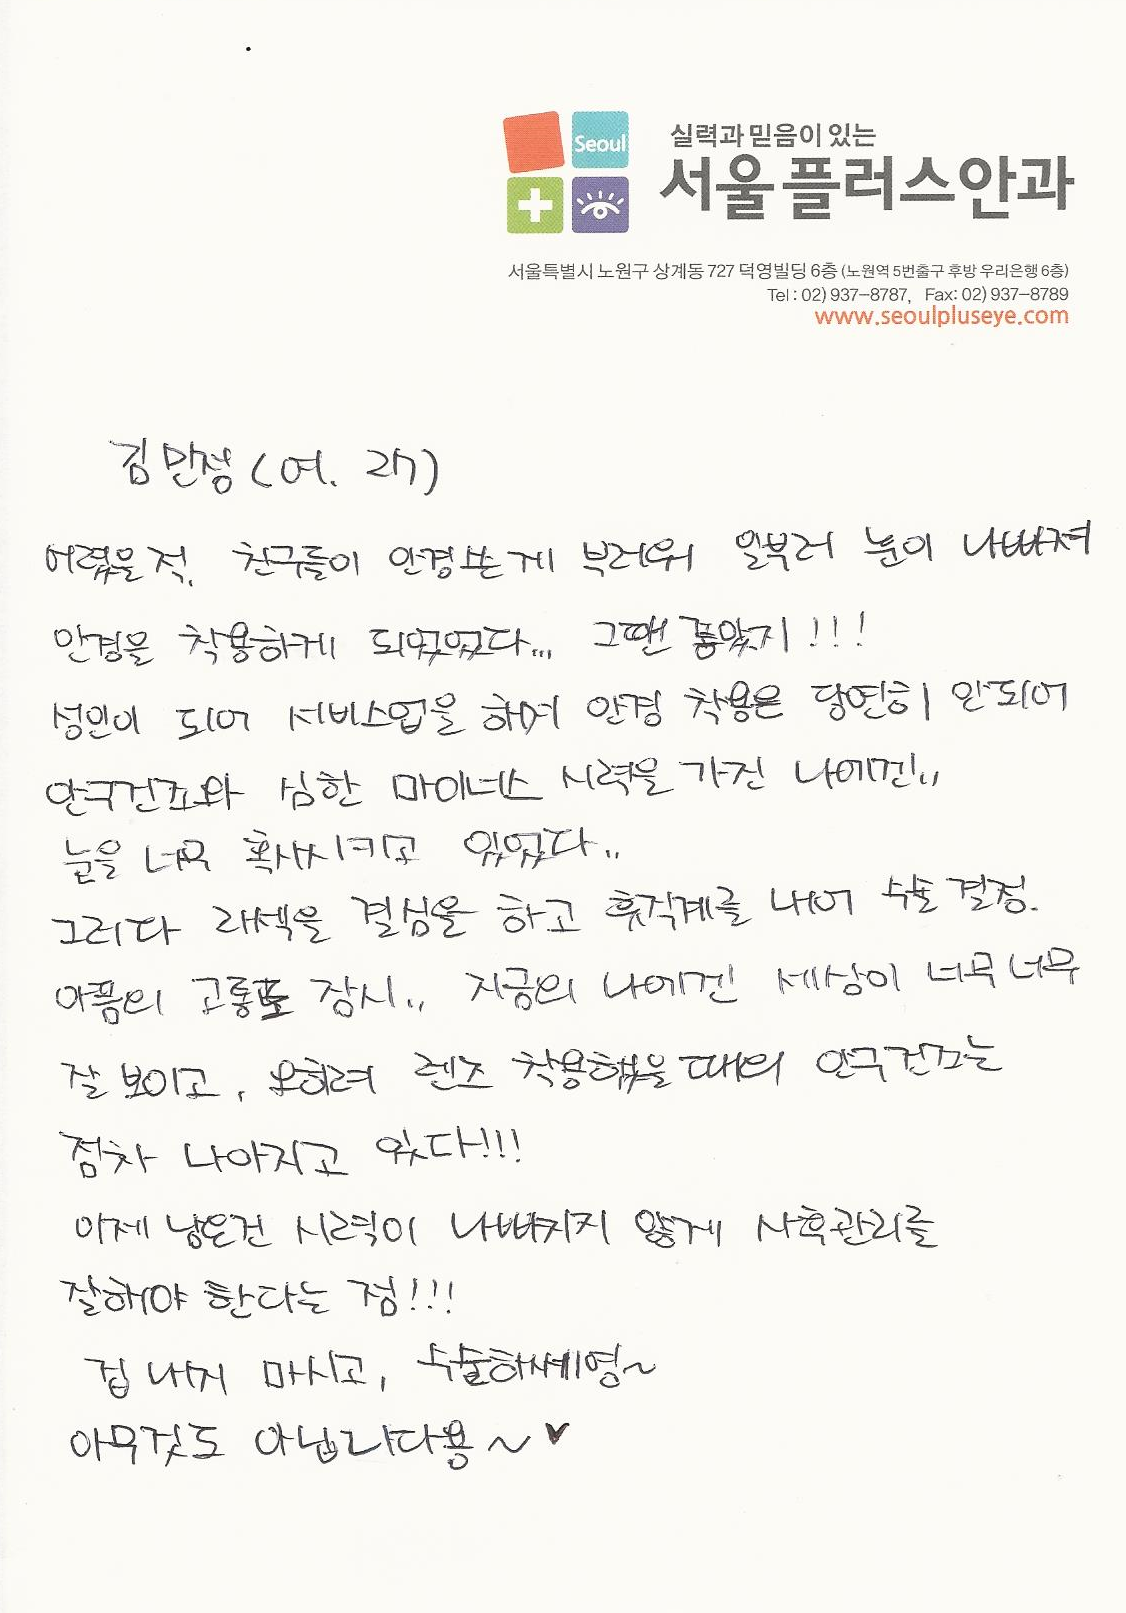 Seoul
실력과 믿음이 있는
서울플러스안과
서울특별시 노원구 상계동 727 덕영빌딩 6층 (노원역 5번출구 후방 우리은행 6층)
Tel : 02) 937-8787, Fax: 02) 937-8789
www.seoulpluseye.com
김민정 (여. 27)
어렸을적, 친구들이 안경쓴게 부러워 일부러 눈이 나빠져
안경을 착용하게 되었었다... 그땐 좋았지!!!
성인이 되어 서비스업을 하며 안경 착용은 당연히 안되어
안구건조와 심한 마이너스 시력을 가진 나에겐..
눈을 너무 혹사시키고 있었다..
그러다 라섹을 결심을 하고 휴직계를 내어 수술 결정.
아픔의 고통도 잠시.. 지금의 나에겐 세상이 너무너무
잘 보이고, 오히려 렌즈 착용했을때의 안구건조는
점차 나아지고 있다!!!
이제 남은건 시력이 나빠지지 않게 사후관리를
잘해야 한다는 점!!!
겁 내지 마시고, 수술하세영~
아무것도 아닙니다용~ ♥